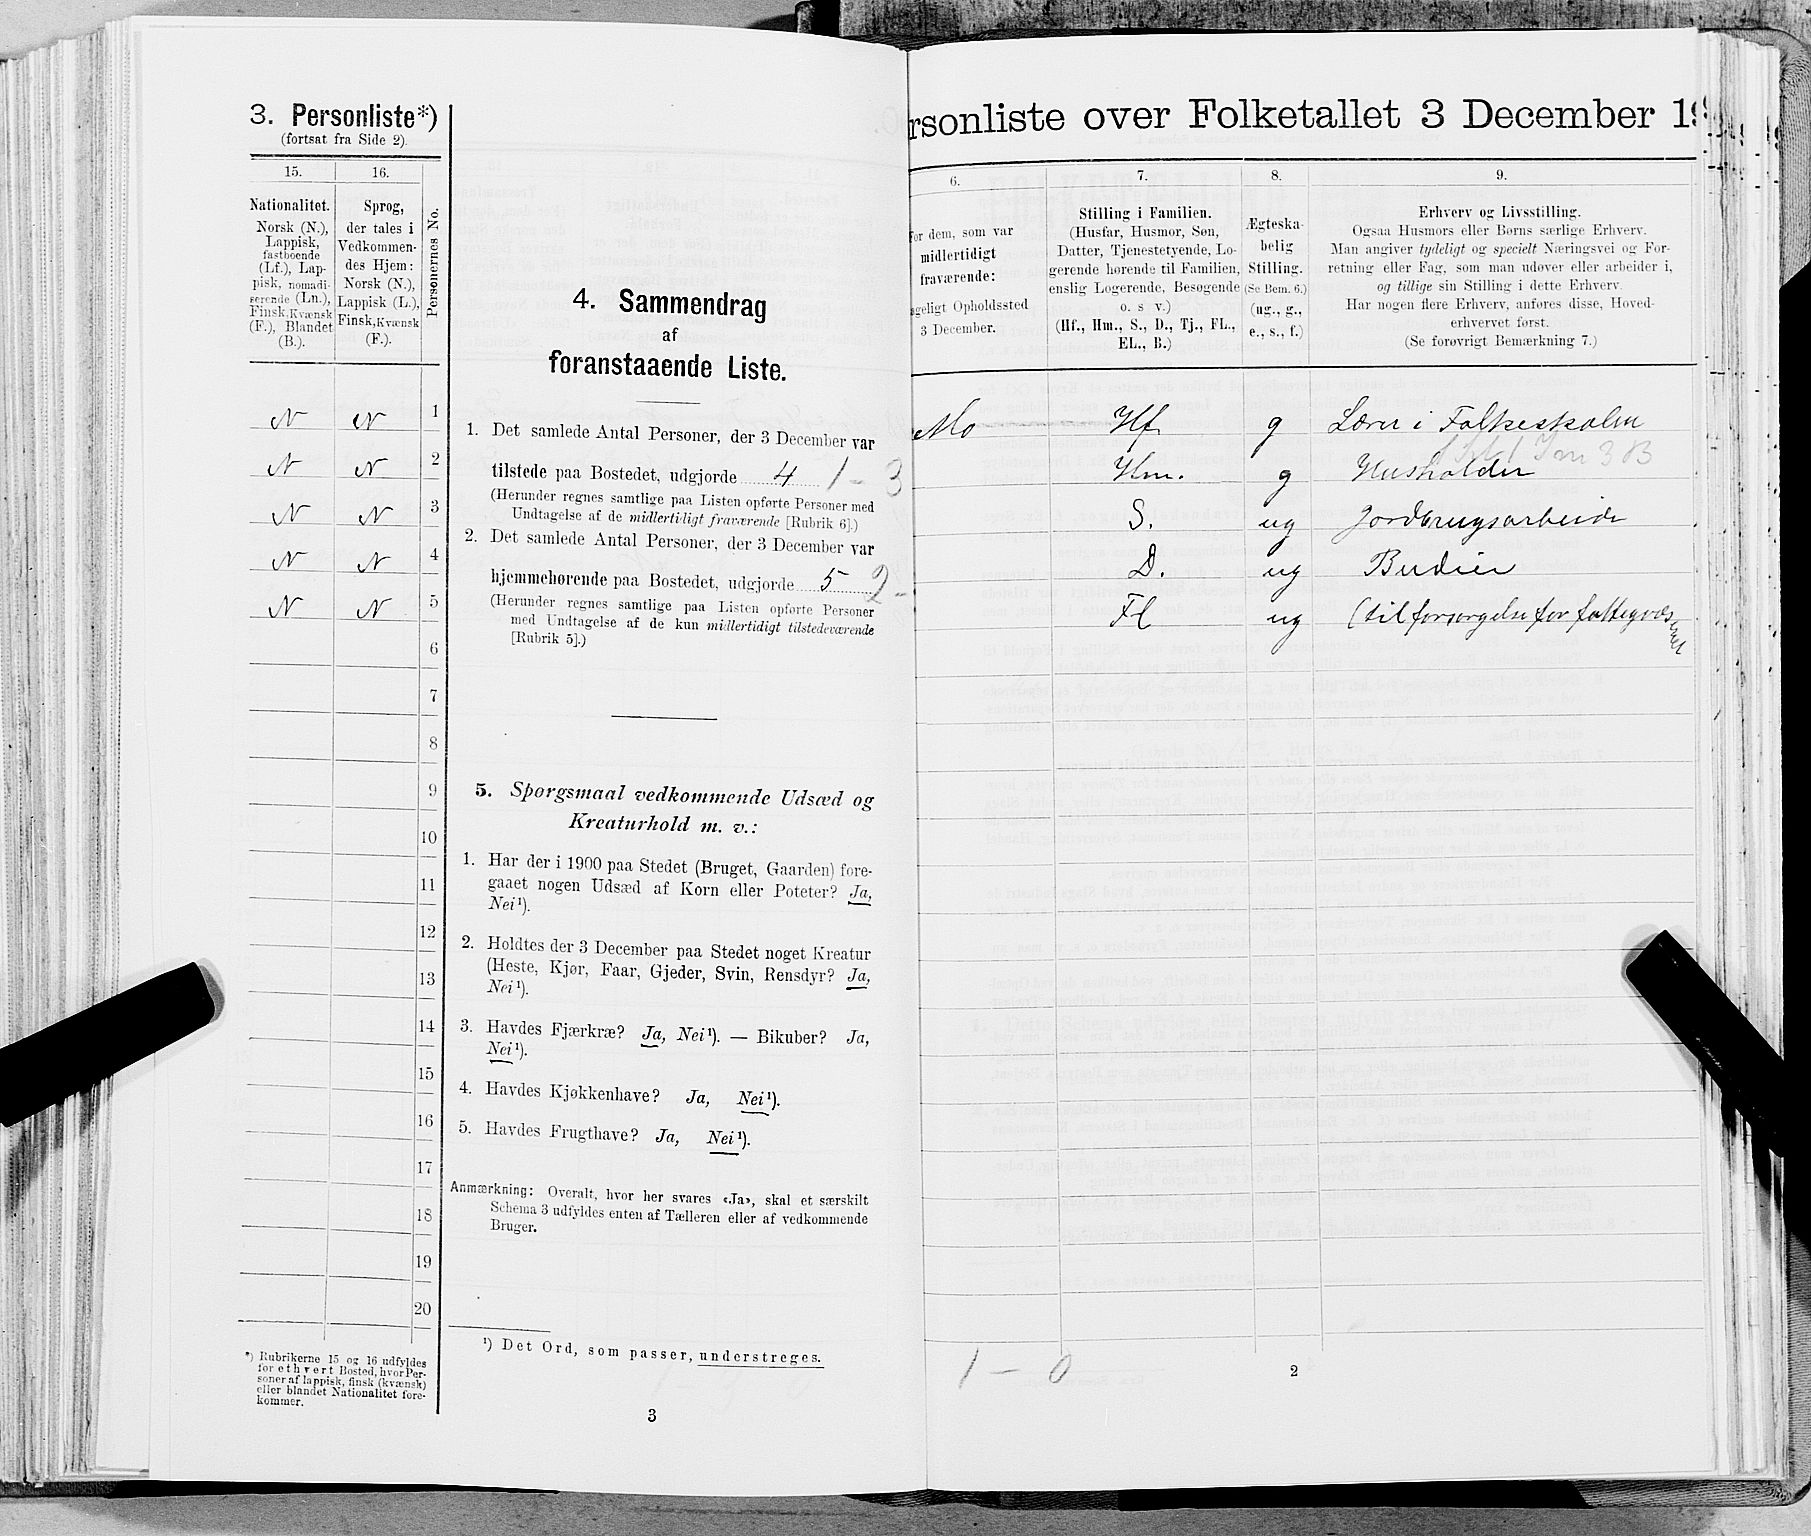 3. Personliste*)
(fortsat fra Side 2).
15.
16.
Personernes No.
Nationalitet.
Norsk (N.),
Lappisk,
fastboende
(Lf.), Lap-
pisk, nomadi-
serende (Ln.),
Finsk, Kvænsk
(F.), Blandet
(B.).
Sprog,
der tales i
Vedkommen-
des Hjem:
Norsk (N.),
Lappisk (L.),
Finsk, Kvænsk
(F.).
N N 1
N N 2
N N 3
N N 4
N N 5
6
7
8
9
10
11
12
13
14
15
16
17
18
19
20
*) Rubrikerne 15 og 16 udfyldes
for ethvert Bosted, hvor Per-
soner af lappisk, finsk (kvænsk)
eller blandet Nationalitet fore-
kommer.
4. Sammendrag
af
foranstaaende Liste.
1. Det samlede Antal Personer, der 3 December var
tilstede paa Bostedet, udgjorde 4 1 - 3
(Herunder regnes samtlige paa Listen opførte Personer med
Undtagelse af de midlertidigt fraværende [Rubrik 6].)
2. Det samlede Antal Personer, der 3 December var
hjemmehørende paa Bostedet, udgjorde 5 2 -
(Herunder regnes samtlige paa Listen opførte Personer
med Undtagelse af de kun midlertidigt tilstedeværende
[Rubrik 5].)
5. Spørgsmaal vedkommende Udsæd og
Kreaturhold m. v.:
1. Har der i 1900 paa Stedet (Bruget, Gaarden) fore-
gaaet nogen Udsæd af Korn eller Poteter? Ja,
Nei¹).
2. Holdtes der 3 December paa Stedet noget Kreatur
(Heste, Kjør, Faar, Gjeder, Svin, Rensdyr? Ja,
Nei¹).
3. Havdes Fjærkræ? Ja, Nei¹). — Bikuber? Ja,
Nei¹).
4. Havdes Kjøkkenhave? Ja, Nei¹).
5. Havdes Frugthave? Ja, Nei¹).
Anmærkning: Overalt, hvor her svares «Ja», skal et særskilt
Schema 3 udfyldes enten af Tælleren eller af vedkommende
Bruger.
¹) Det Ord, som passer, understreges.
3
rsonliste over Folketallet 3 December 19
6.
7.
8.
9.
for dem, som var
midlertidigt
fraværende:
geligt Opholdssted
3 December.
Stilling i Familien.
(Husfar, Husmor, Søn,
Datter, Tjenestetyende, Lo-
gerende hørende til Familien,
enslig Logerende, Besøgende
o. s v.)
(Hf., Hm., S., D., Tj., FL.,
EL., B.)
Ægteska-
belig
Stilling.
(Se Bem. 6.)
(ug., g.,
e., s., f.)
Erhverv og Livsstilling.
Ogsaa Husmors eller Børns særlige Erhverv.
Man angiver tydeligt og specielt Næringsvei og For-
retning eller Fag, som man udøver eller arbeider i,
og tillige sin Stilling i dette Erhverv.
Har nogen flere Erhverv, anføres disse, Hoved-
erhvervet først.
(Se forøvrigt Bemærkning 7.)
Mo Hf. g Lærer i Folkeskolen
Hm. g Husholder
S. ug Jordbrugsarbeide
D. ug Budeie
Fl ug (til forsørgelse for fattigvæsenet
1 - 0
2